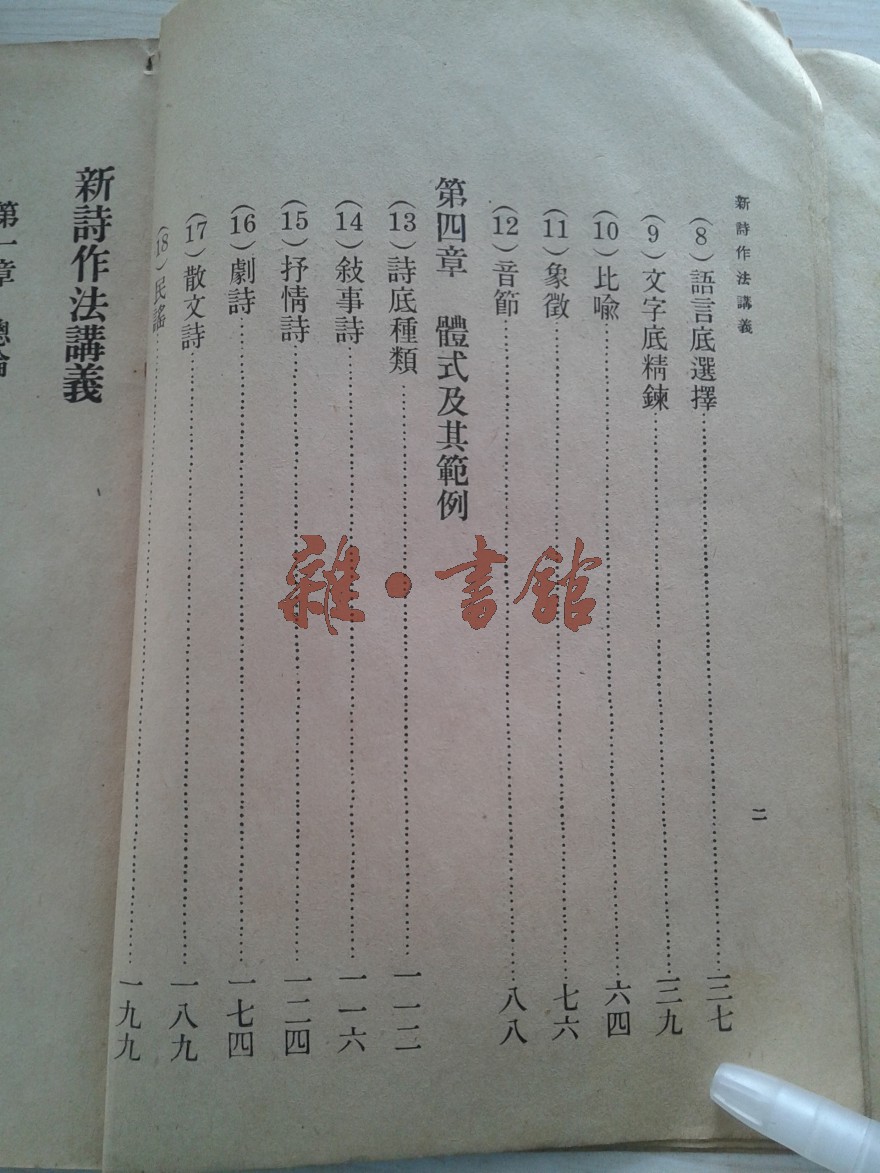 新詩作法講義
二
(8)語言底選擇……三七
(9)文字底精鍊……三九
(10)比喻……六四
(11)象徵……七六
(12)音節……八八
第四章 體式及其範例
(13)詩底種類……一一二
(14)敍事詩……一一六
(15)抒情詩……一二四
(16)劇詩……一七四
(17)散文詩……一八九
(18)民謠……一九九
新詩作法講義
第一章 總論
雜·書館